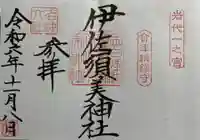 岩代一之宮
会津總鎮守
伊佐須美神社
奉拝
令和六年十一月八日